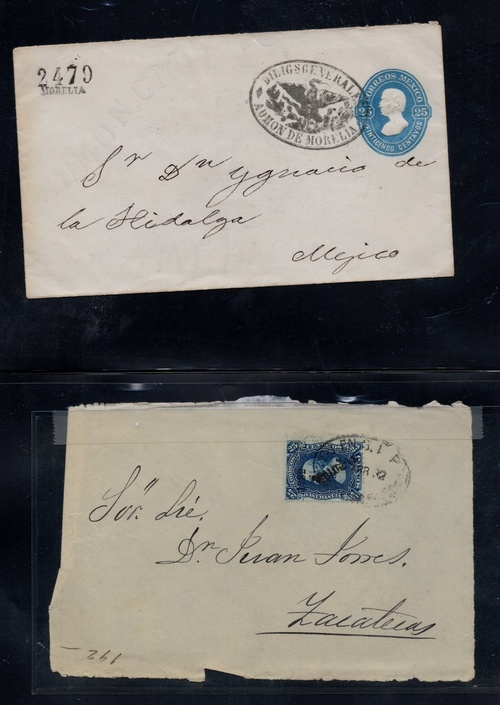 2479
MORELIA
DILIGS GENERALES
ADMON DE MORELIA
CORREOS MEXICO
25 25
VEINTICINCO CENTAVOS
Sr Dn Ygnacio de
la Hidalga
Mejico
Sor. Lic.
Dn Juan Torres.
Zacatecas
142